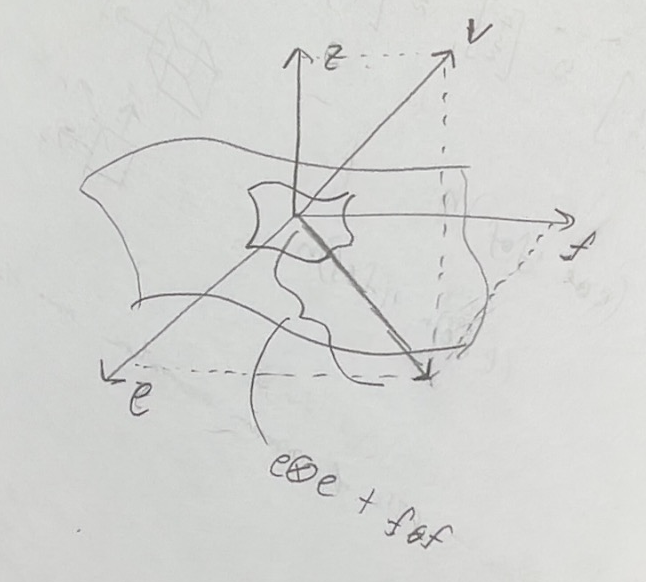 z
V
f
e
e⊗e + f⊗f